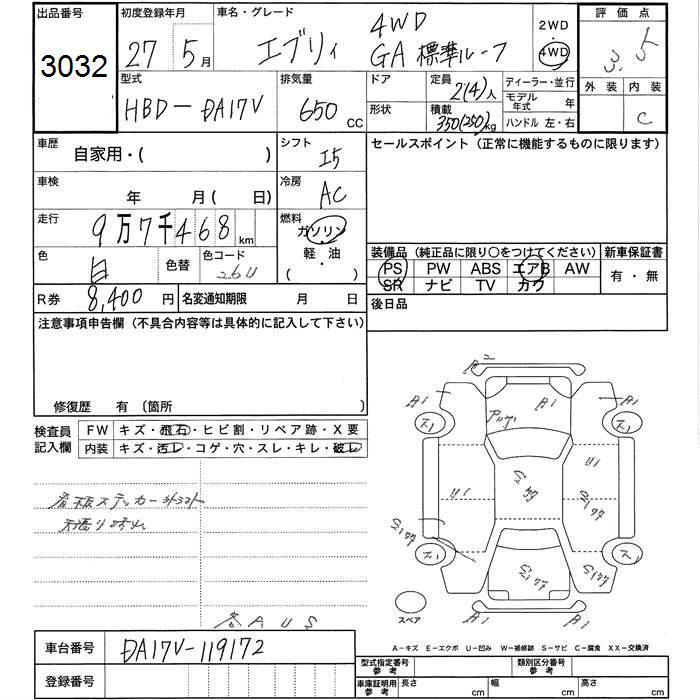 出品番号
3032
初度登録年月
27 5月
車名・グレード
エブリィ
4WD
GA 標準ルーフ
2WD
4WD
評価点
3.5
外装 内装
C
型式
HBD-DA17V
排気量
650 CC
ドア
形状
定員
2(4)人
積載
350(250)kg
ディーラー・並行
モデル年式 年
ハンドル 左・右
車歴
自家用・( )
シフト
I5
セールスポイント (正常に機能するものに限ります)
車検
年 月( 日)
冷房
AC
走行
9万7千468 km
燃料
ガソリン
軽・油
( ・ )
色
白
色替
色コード
26U
装備品 (純正品に限り○をつけてください)
新車保証書
PS PW ABS エアB AW
SR ナビ TV カワ
有・無
R券 8,400円
名変通知期限 月 日
後日品
注意事項申告欄 (不具合内容等は具体的に記入して下さい)
修復歴 有 〔箇所 〕
検査員記入欄
FW キズ・飛石・ヒビ割・リペア跡・X要
内装 キズ・汚レ・コゲ・穴・スレ・キレ・破レ
看板ステッカー
A2
A1
A1
A1
ス1
ス1
U1
U1
ス1
ス1
A1
A1
スペア
AUS
A-キズ E-エクボ U-凹み W-補修跡 S-サビ C-腐食 XX-交換済
車台番号
DA17V-119172
登録番号
型式指定番号 参考
類別区分番号 参考
車庫証明用 参考
長さ cm
幅 cm
高さ cm